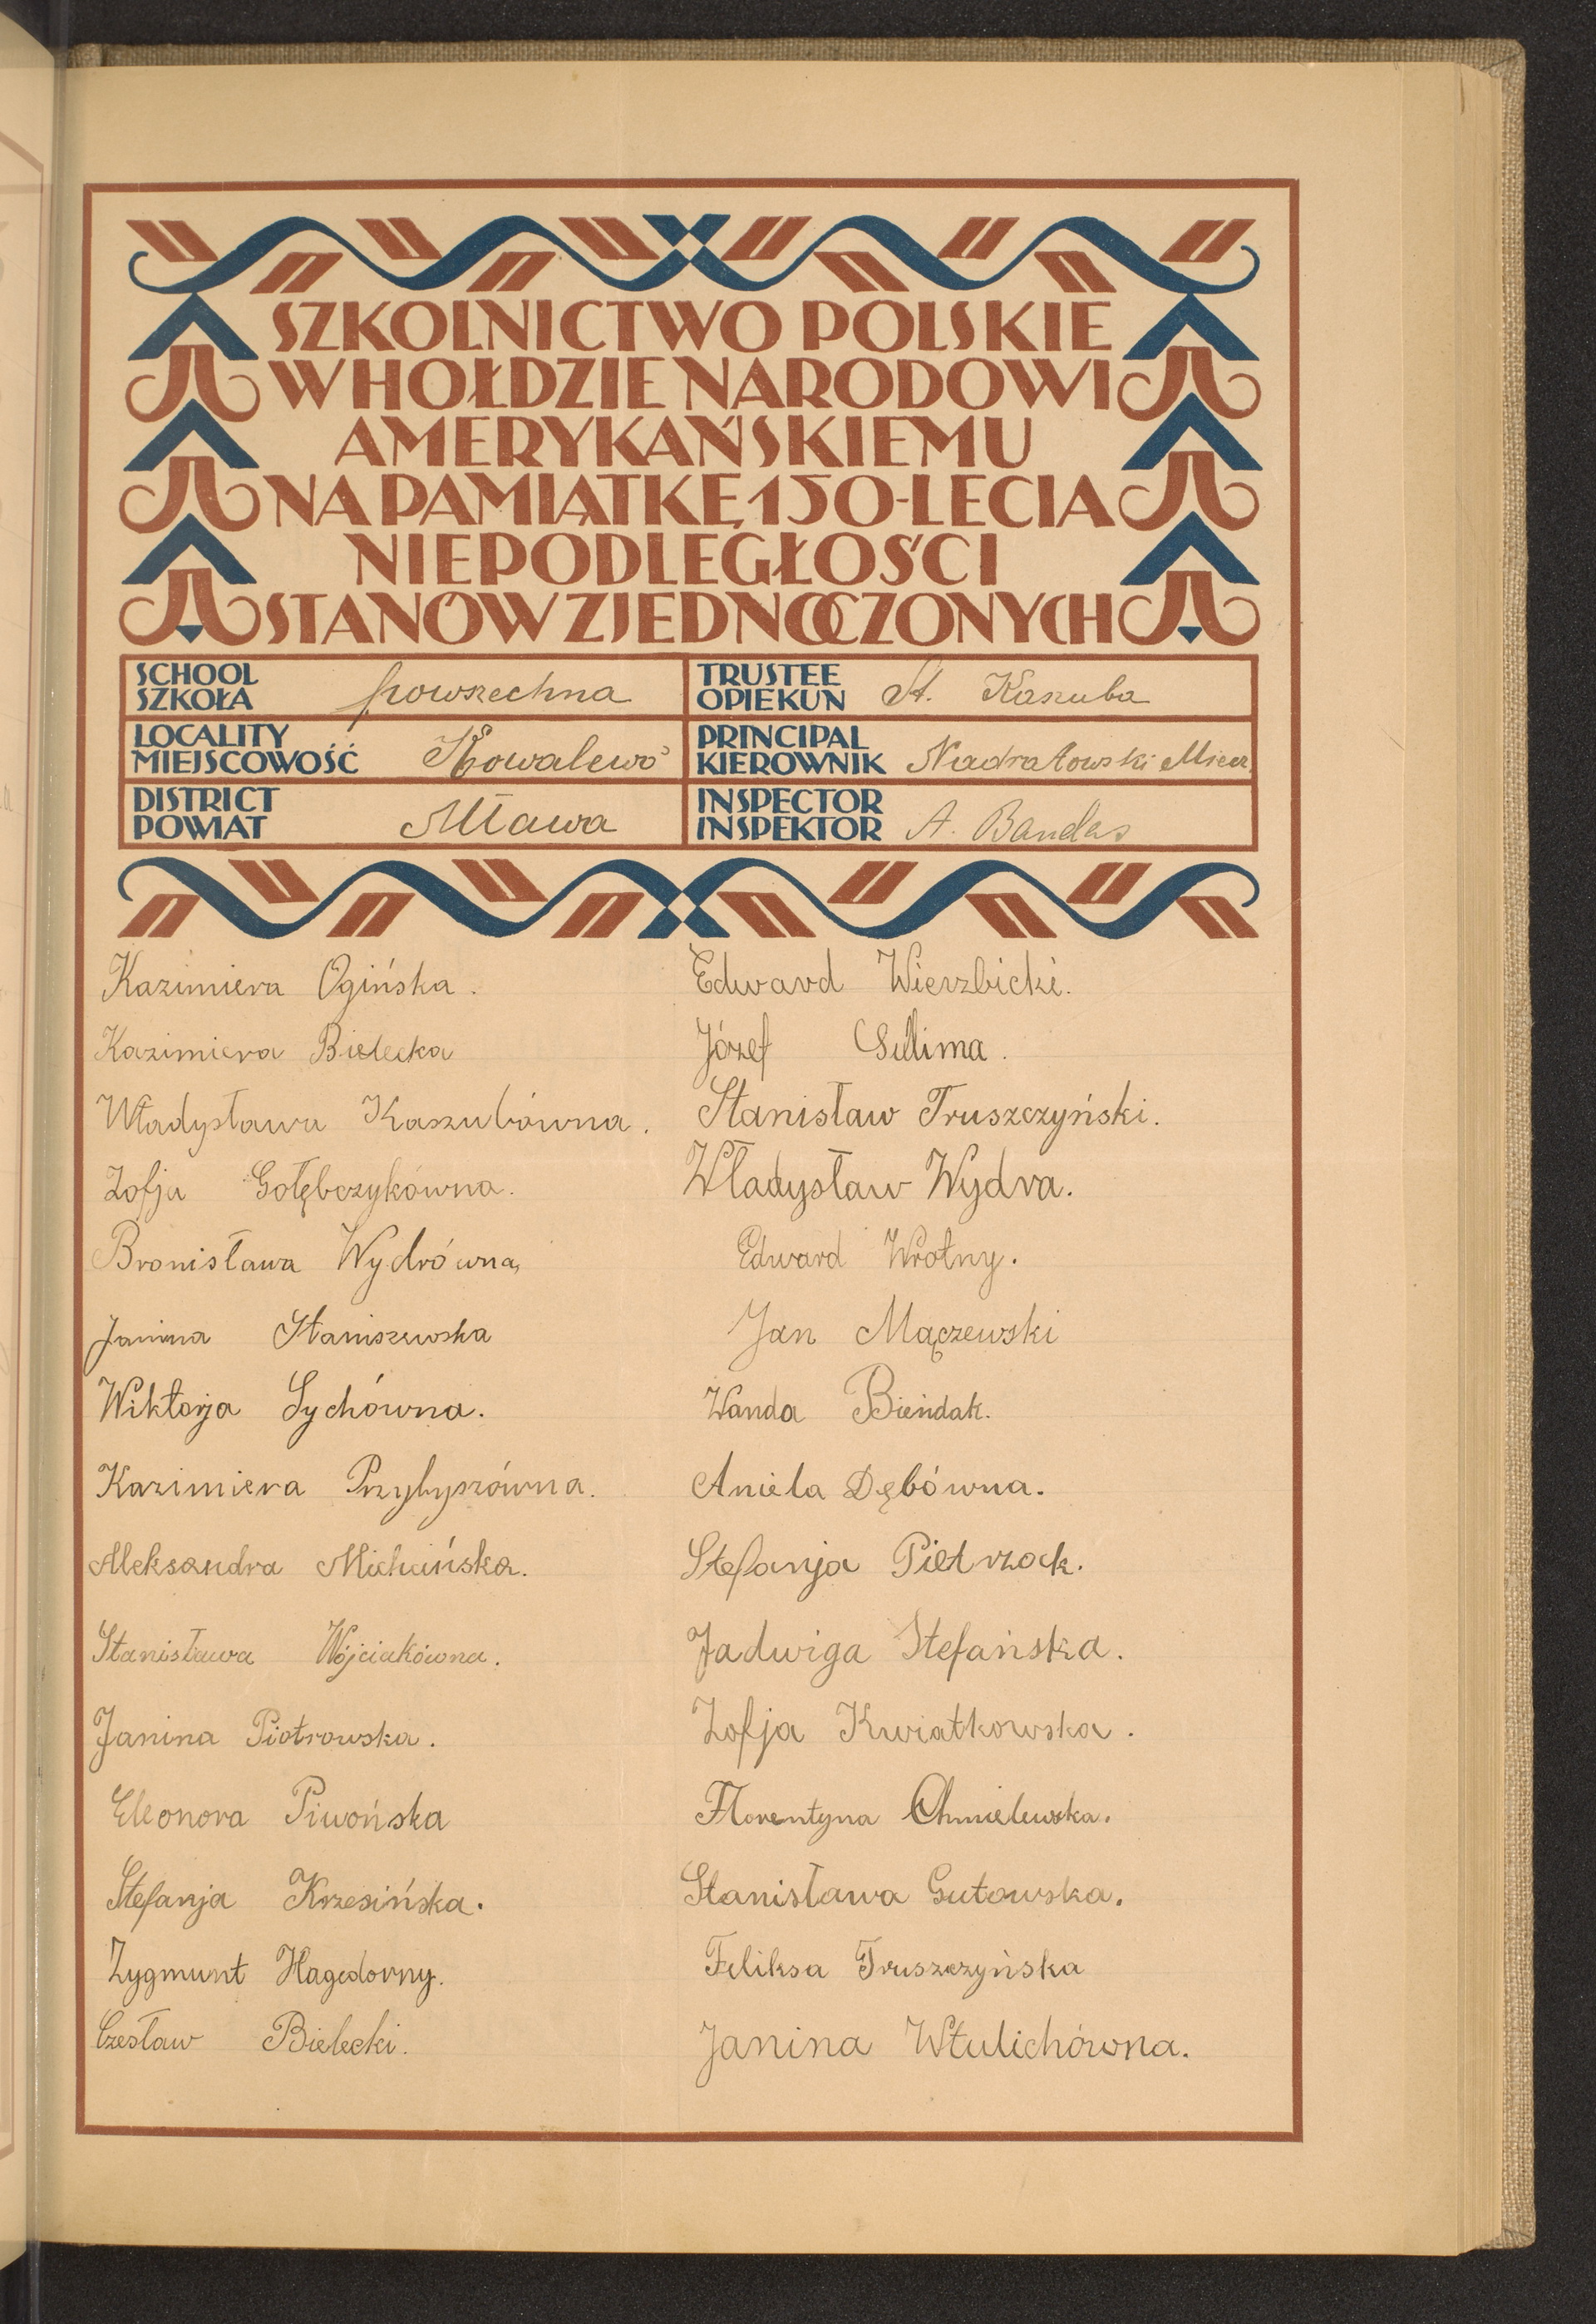 SZKOLNICTWO POLSKIE
W HOŁDZIE NARODOWI
AMERYKAŃSKIEMU
NA PAMIĄTKĘ 150-LECIA
NIEPODLEGŁOŚCI
STANÓW ZJEDNOCZONYCH
SCHOOL
SZKOŁA powszechna
TRUSTEE
OPIEKUN St. Kaszuba
LOCALITY
MIEJSCOWOŚĆ Kowalewo
PRINCIPAL
KIEROWNIK Nadratowski Miecz.
DISTRICT
POWIAT Mława
INSPECTOR
INSPEKTOR A. Bandas
Kazimiera Ogińska.
Kazimiera Bielecka
Władysława Kaszubówna.
Zofja Gołębczykówna.
Bronisława Wydrówna,
Janina Staniszewska
Wiktorja Sychówna.
Kazimiera Przybyszówna.
Aleksandra Michcińska.
Stanisława Wójciakówna.
Janina Piotrowska.
Eleonora Piwońska
Stefanja Krzesińska.
Zygmunt Hagedorny.
Czesław Bielecki.
Edward Wierzbicki.
Józef Sulima.
Stanisław Truszczyński.
Władysław Wydra.
Edward Wrotny.
Jan Mączewski
Wanda Bieńdak.
Aniela Dębówna.
Stefanja Pietrzack.
Jadwiga Stefańska.
Zofja Kwiatkowska.
Florentyna Chmielewska.
Stanisława Gutowska.
Feliksa Truszczyńska
Janina Wtulichówna.